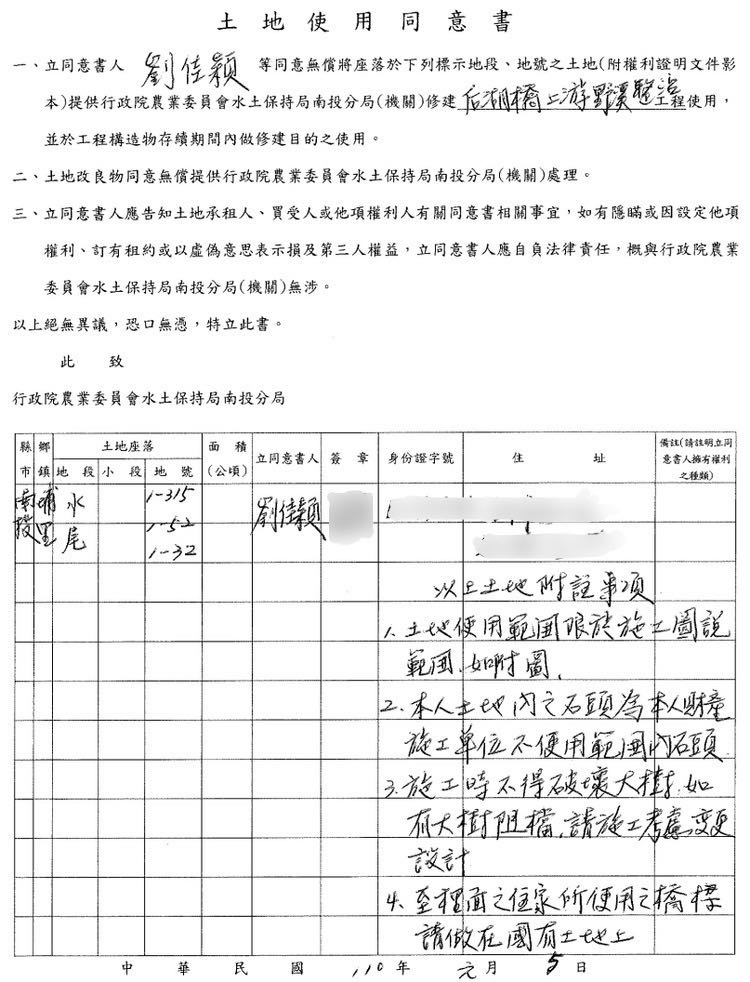 土地使用同意書
一、立同意書人 劉佳穎 等同意無償將座落於下列標示地段、地號之土地(附權利證明文件影
本)提供行政院農業委員會水土保持局南投分局(機關)修建 后湖橋上游野溪整治工程使用，
並於工程構造物存續期間內做修建目的之使用。
二、土地改良物同意無償提供行政院農業委員會水土保持局南投分局(機關)處理。
三、立同意書人應告知土地承租人、買受人或他項權利人有關同意書相關事宜，如有隱瞞或因設定他項
權利、訂有租約或以虛偽意思表示損及第三人權益，立同意書人應自負法律責任，概與行政院農業
委員會水土保持局南投分局(機關)無涉。
以上絕無異議，恐口無憑，特立此書。
此 致
行政院農業委員會水土保持局南投分局
縣市 鄉鎮 土地座落 面積(公頃) 立同意書人 簽章 身份證字號 住址 備註(請註明立同意書人擁有權利之種類)
地段 小段 地號
南投 埔里 水尾 1-315 劉佳穎
1-52
1-32
以上土地附註事項
1. 土地使用範圍限於施工圖說
範圍.如附圖.
2. 本人土地內之石頭為本人財產
施工單位不使用範圍內石頭.
3. 施工時不得破壞大樹.如
有大樹阻檔.請施工考慮變更
設計
4. 至裡面之住家所使用之橋樑
請做在國有土地上
中華民國 110 年 元 月 5 日